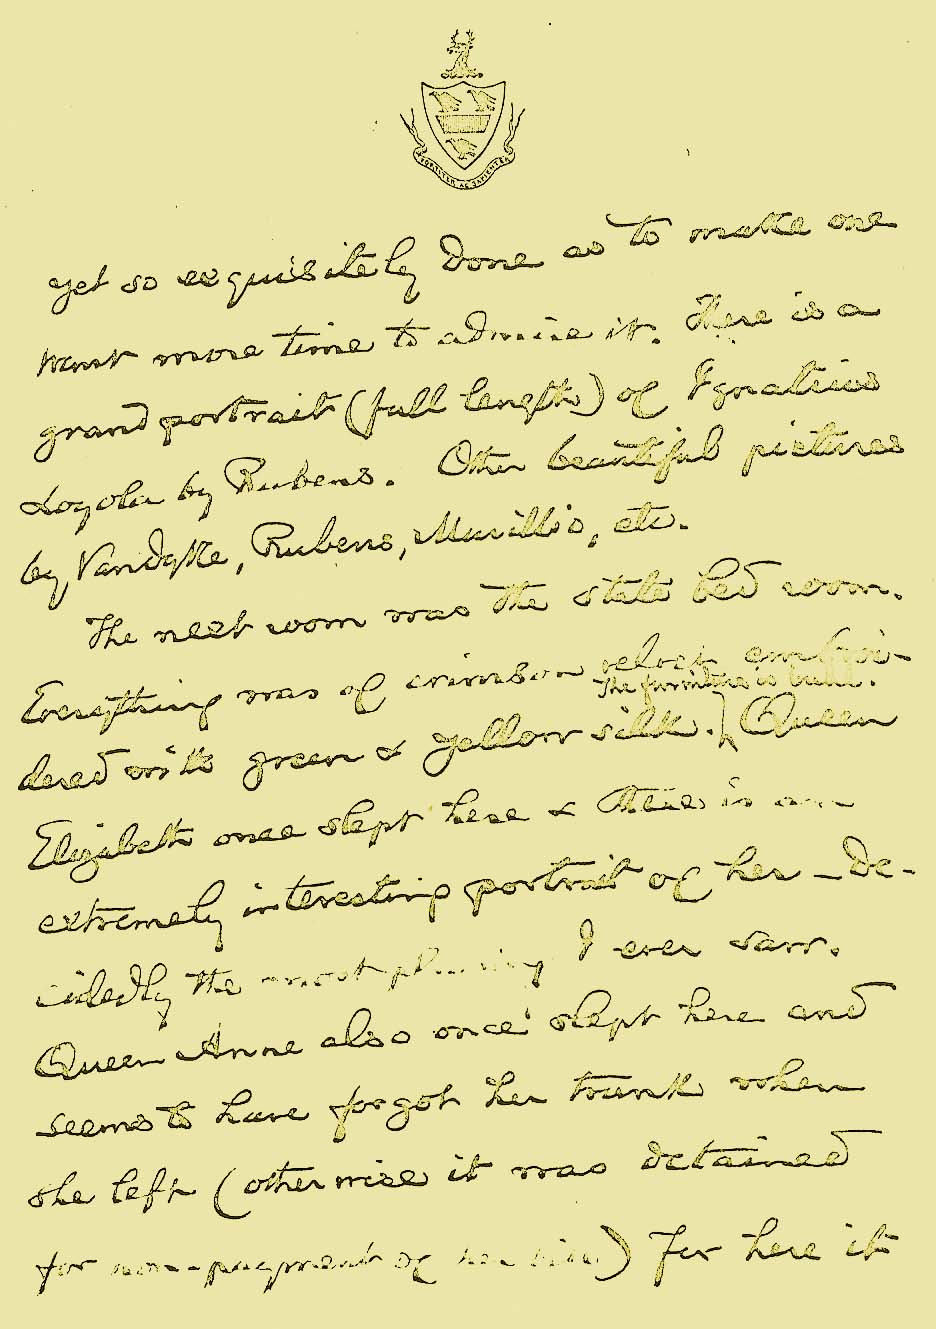 FORTITER AC SAPIENTER
yet so exquisitely done as to make one
want more time to admire it. There is a
grand portrait (full length) of Ignatius
Loyola by Rubens. Other beautiful pictures
by Vandyke, Rubens, Murillio, etc.
The next room was the state bed room.
Everything was of crimson velvet embroi-
The furniture is build.
dered with green & yellow silk. Queen
Elizabeth once slept here & there is an
extremely interesting portrait of her - de-
cidedly the most pleasing I ever saw.
Queen Anne also once slept here and
seems to have forgot her trunk when
she left (otherwise it was detained
for non-payment of her bill) for here it